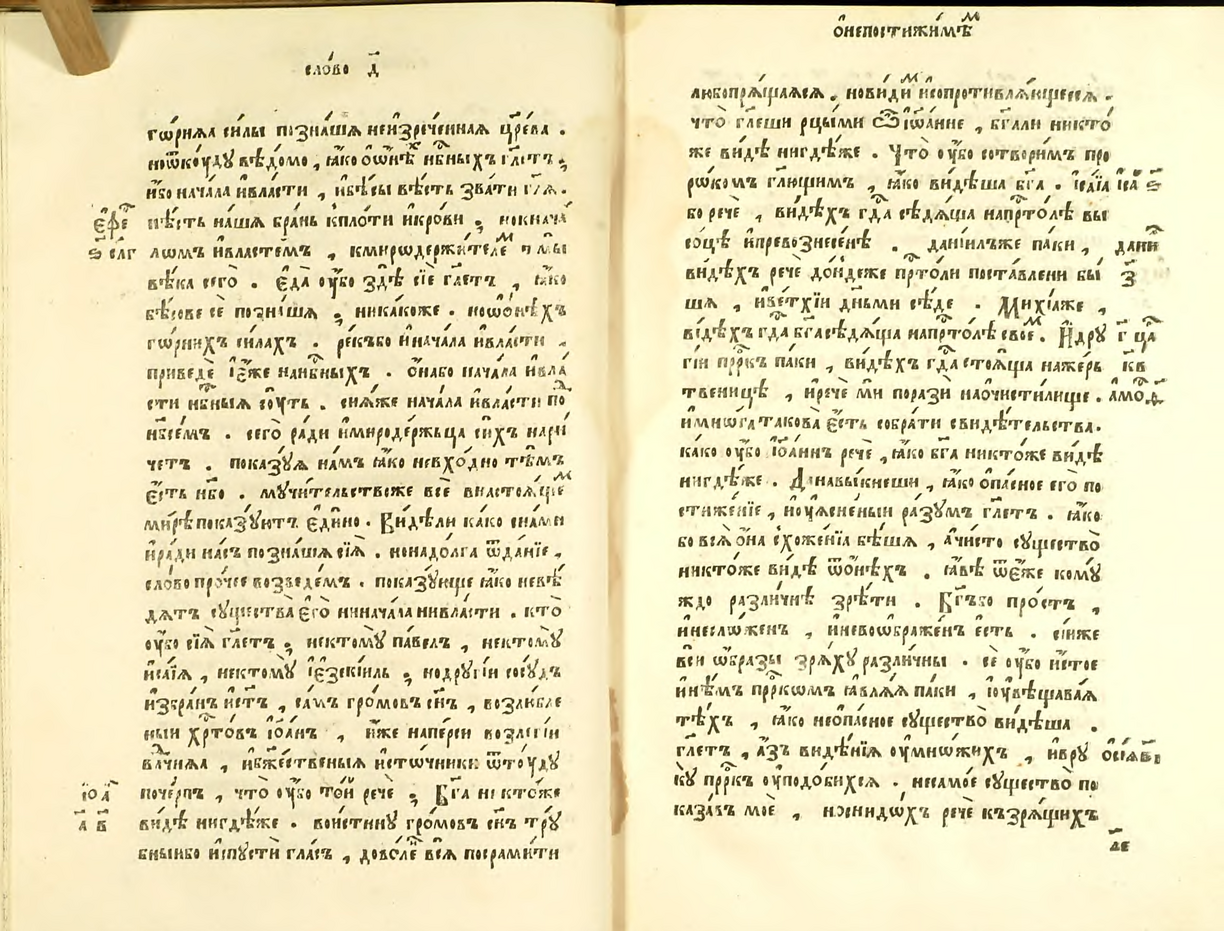 сло́во д҃
го́рнѧѧ си́лы позна́шѧ неи҆зрече́ннаѧ цр҃е́ва .
но ѿкꙋ́дꙋ вѣ́домо , ꙗ҆́ко о҆ ѡ҆́нѣх нб҃ныхъ гл҃етъ ;
и҆́бо нача́ла и҆ вла́сти , и҆ бѣ́сы вѣ́сть зва́ти гл҃ѧ .
є҆фе
нѣ́сть на́ша бра́нь к пло́ти и҆ кро́ви ; но к нача́
ѕ҃ слг
лѡмъ и҆ власте́мъ , к миродержи́телем тмы̀
вѣ́ка сего̀ . є҆да̀ ᲂу҆́бо здѣ̀ сїѐ гл҃етъ , ꙗ҆́ко
бѣ́сове сѐ позна́шѧ ; никакоже . но ѡ҆ ѻ҆нѣ́хъ
го́рнихъ си́лахъ . ре́къ бо и҆ нача́ла и҆ вла́сти ,
приведѐ і҆ є҆́же на нб҃ныхъ . ѻ҆на́ бо нача́ла и҆ вла́
сти нб҃ныѧ сꙋ́ть . сиѧ́же нача́ла и҆ вла́сти по
нб҃се́мъ . сего̀ ра́ди и҆ миродержьца си́хъ нари́
четъ . показꙋ́ѧ на́мъ ꙗ҆́ко невхо́дно тѣ́мъ
є҆́сть нб҃о . мꙋчи́тельствоже всѐ в настоѧ́щем
ми́рѣ показꙋ́ютъ є҆ди́но . Ви́дѣли ка́ко с на́ми
и҆ ра́ди на́съ позна́шѧ сїѧ̀ . но на до́лга ѿда́нїе ,
сло́во про́чее возведе́мъ . показꙋ́юще ꙗ҆́ко не вѣ́
дѧтъ сꙋщества̀ є҆гѡ̀ ни нача́ла ни вла́сти . кто̀
ᲂу҆́бо сїѧ̀ гл҃етъ ; не к томꙋ̀ па́велъ , не к томꙋ̀
и҆са́їѧ , не к томꙋ̀ і҆є҆зекі́иль , но дрꙋгі́й сосꙋ́дъ
и҆збра́нъ и҆́етъ , са́мъ гро́мовъ сн҃ъ , возлюбле
ныи хрⷭ҇то́въ і҆ѡа́нъ , и҆́же на пе́рси возлегі́и
влⷣчнѧѧ , и҆ бж҃е́ственыѧ и҆сто́чники ѿтꙋ́дꙋ
і҆оа҃
поче́рпъ , что̀ ᲂу҆́бо то́й речѐ ; Бг҃а никто́же
а҃ в҃
ви́дѣ нигдѣ́же . вои́стинꙋ гро́мовъ сн҃ъ трꙋ́
бныи бо и҆спꙋстѝ гла́съ , довлѣ́е всѧ̀ посрами́ти
ѻ҆ непостижи́мѣм
любопрѧ́щаѧсѧ , но ви́дим и҆ сопротивлѧ́ющеесѧ .
что̀ гл҃еши рцы́ ми ѽ і҆ѡа́нне , бг҃а ли никто́
же ви́дѣ нигдѣ́же . Что̀ ᲂу҆́бо сотвори́мъ про
рѡкомъ гл҃ющимъ , ꙗ҆́ко ви́дѣша бг҃а . і҆са́їа
і҆са ѕ҃
бо речѐ , ви́дѣхъ гдⷭ҇а сѣдѧ́ща на прⷭ҇то́лѣ вы
со́цѣ и҆ превознесе́нѣ . данїи́лъже па́ки ,
дани
ви́дѣхъ речѐ до́ндеже прⷭ҇то́ли поста́влени бы́
з҃
шѧ , и҆ ве́тхїи дньми сѣ́де . Михі́аже ,
ви́дѣхъ гдⷭ҇а бг҃а сѣдѧ́ща на прⷭ҇то́лѣ своем . И҆ дрꙋ
г҃ цр
гі́и прⷪ҇ркъ па́ки , ви́дѣхъ гдⷭ҇а стоѧ́ща на же́рь
кв
твеницѣ , и҆ речѐ мѝ поразѝ на ѻ҆чисти́лище .
амо҃ ѳ҃
и҆ мнѡ́га такова̀ є҆́сть собра́ти свидѣ́тельства .
ка́ко ᲂу҆́бо і҆ѡа́ннъ речѐ , ꙗ҆́ко бг҃а никто́же ви́дѣ
нигдѣ́же . Да навы́кнеши , ꙗ҆́ко ѻ҆па́сное его̀ по
стиже́нїе , и҆ ᲂу҆ѧсне́ныи ра́зꙋмъ гл҃етъ . ꙗ҆́ко
бо всѧ̀ ѻ҆́на схоже́нїа бѣ́шѧ , а҆ чи́сто сꙋщество̀
никто́же ви́дѣ ѿ ѻ҆нѣ́хъ . ꙗ҆́вѣ ѿ є҆́же комꙋ́
ждо разли́чнѣ зрѣ́ти . Бг҃ъ бо про́стъ ,
и҆ несло́женъ , и҆ невоѡбраже́нъ є҆́сть . сі́иже
вси ѡ҆́бразы зрѧ́хꙋ разли́чны . сѐ ᲂу҆́бо и҆́стое
и҆нѣ́мъ прⷪ҇ркѡмъ ꙗ҆влѧ́ѧ па́ки , и҆ ᲂу҆вѣщава́ѧ
тѣ́хъ , ꙗ҆́ко не ѻ҆па́сное сꙋщество̀ ви́дѣша .
гл҃етъ , а҆́зъ видѣ́нїѧ ᲂу҆мно́жихъ , и҆ в рꙋ
ѻсїѧ в҃і
кꙋ̀ прⷪ҇ркъ ᲂу҆подо́бихсѧ . не само́е сꙋщество̀ по
каза́въ моѐ , но снидо́хъ речѐ къ зрѧ́щихъ
де